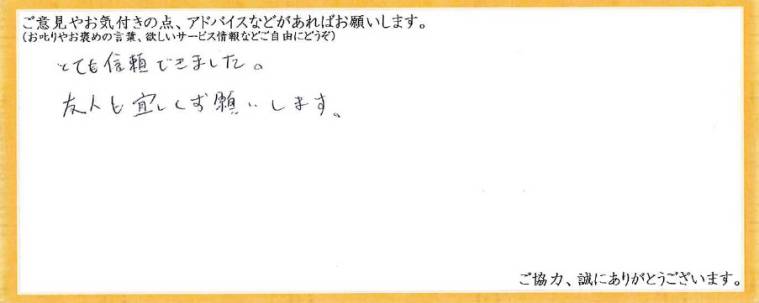 ご意見やお気付きの点、アドバイスなどがあればお願いします。
(お叱りやお褒めの言葉、欲しいサービス情報などご自由にどうぞ)
とても信頼できました。
友人も宜しくお願いします。
ご協力、誠にありがとうございます。